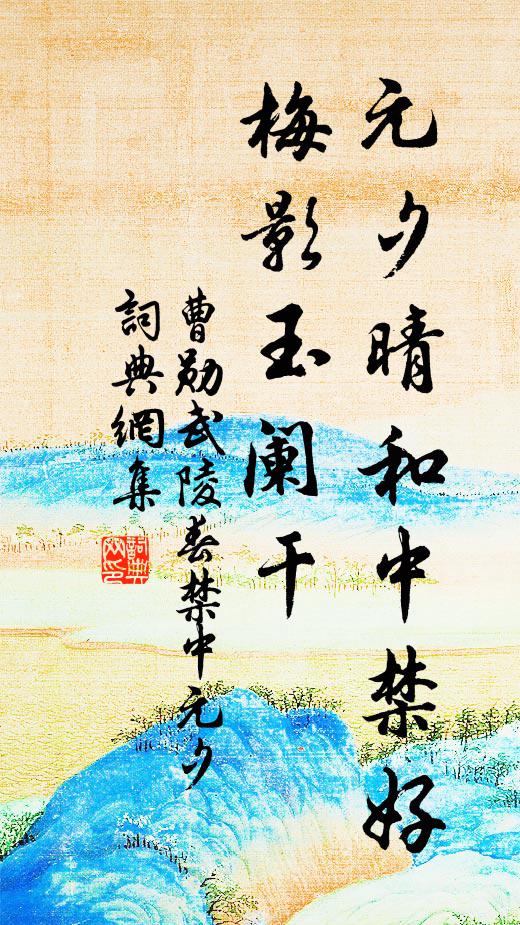 元夕晴和中禁好
梅影玉阑干
曹勋武陵春禁中元夕
詞典網集
詞典網印